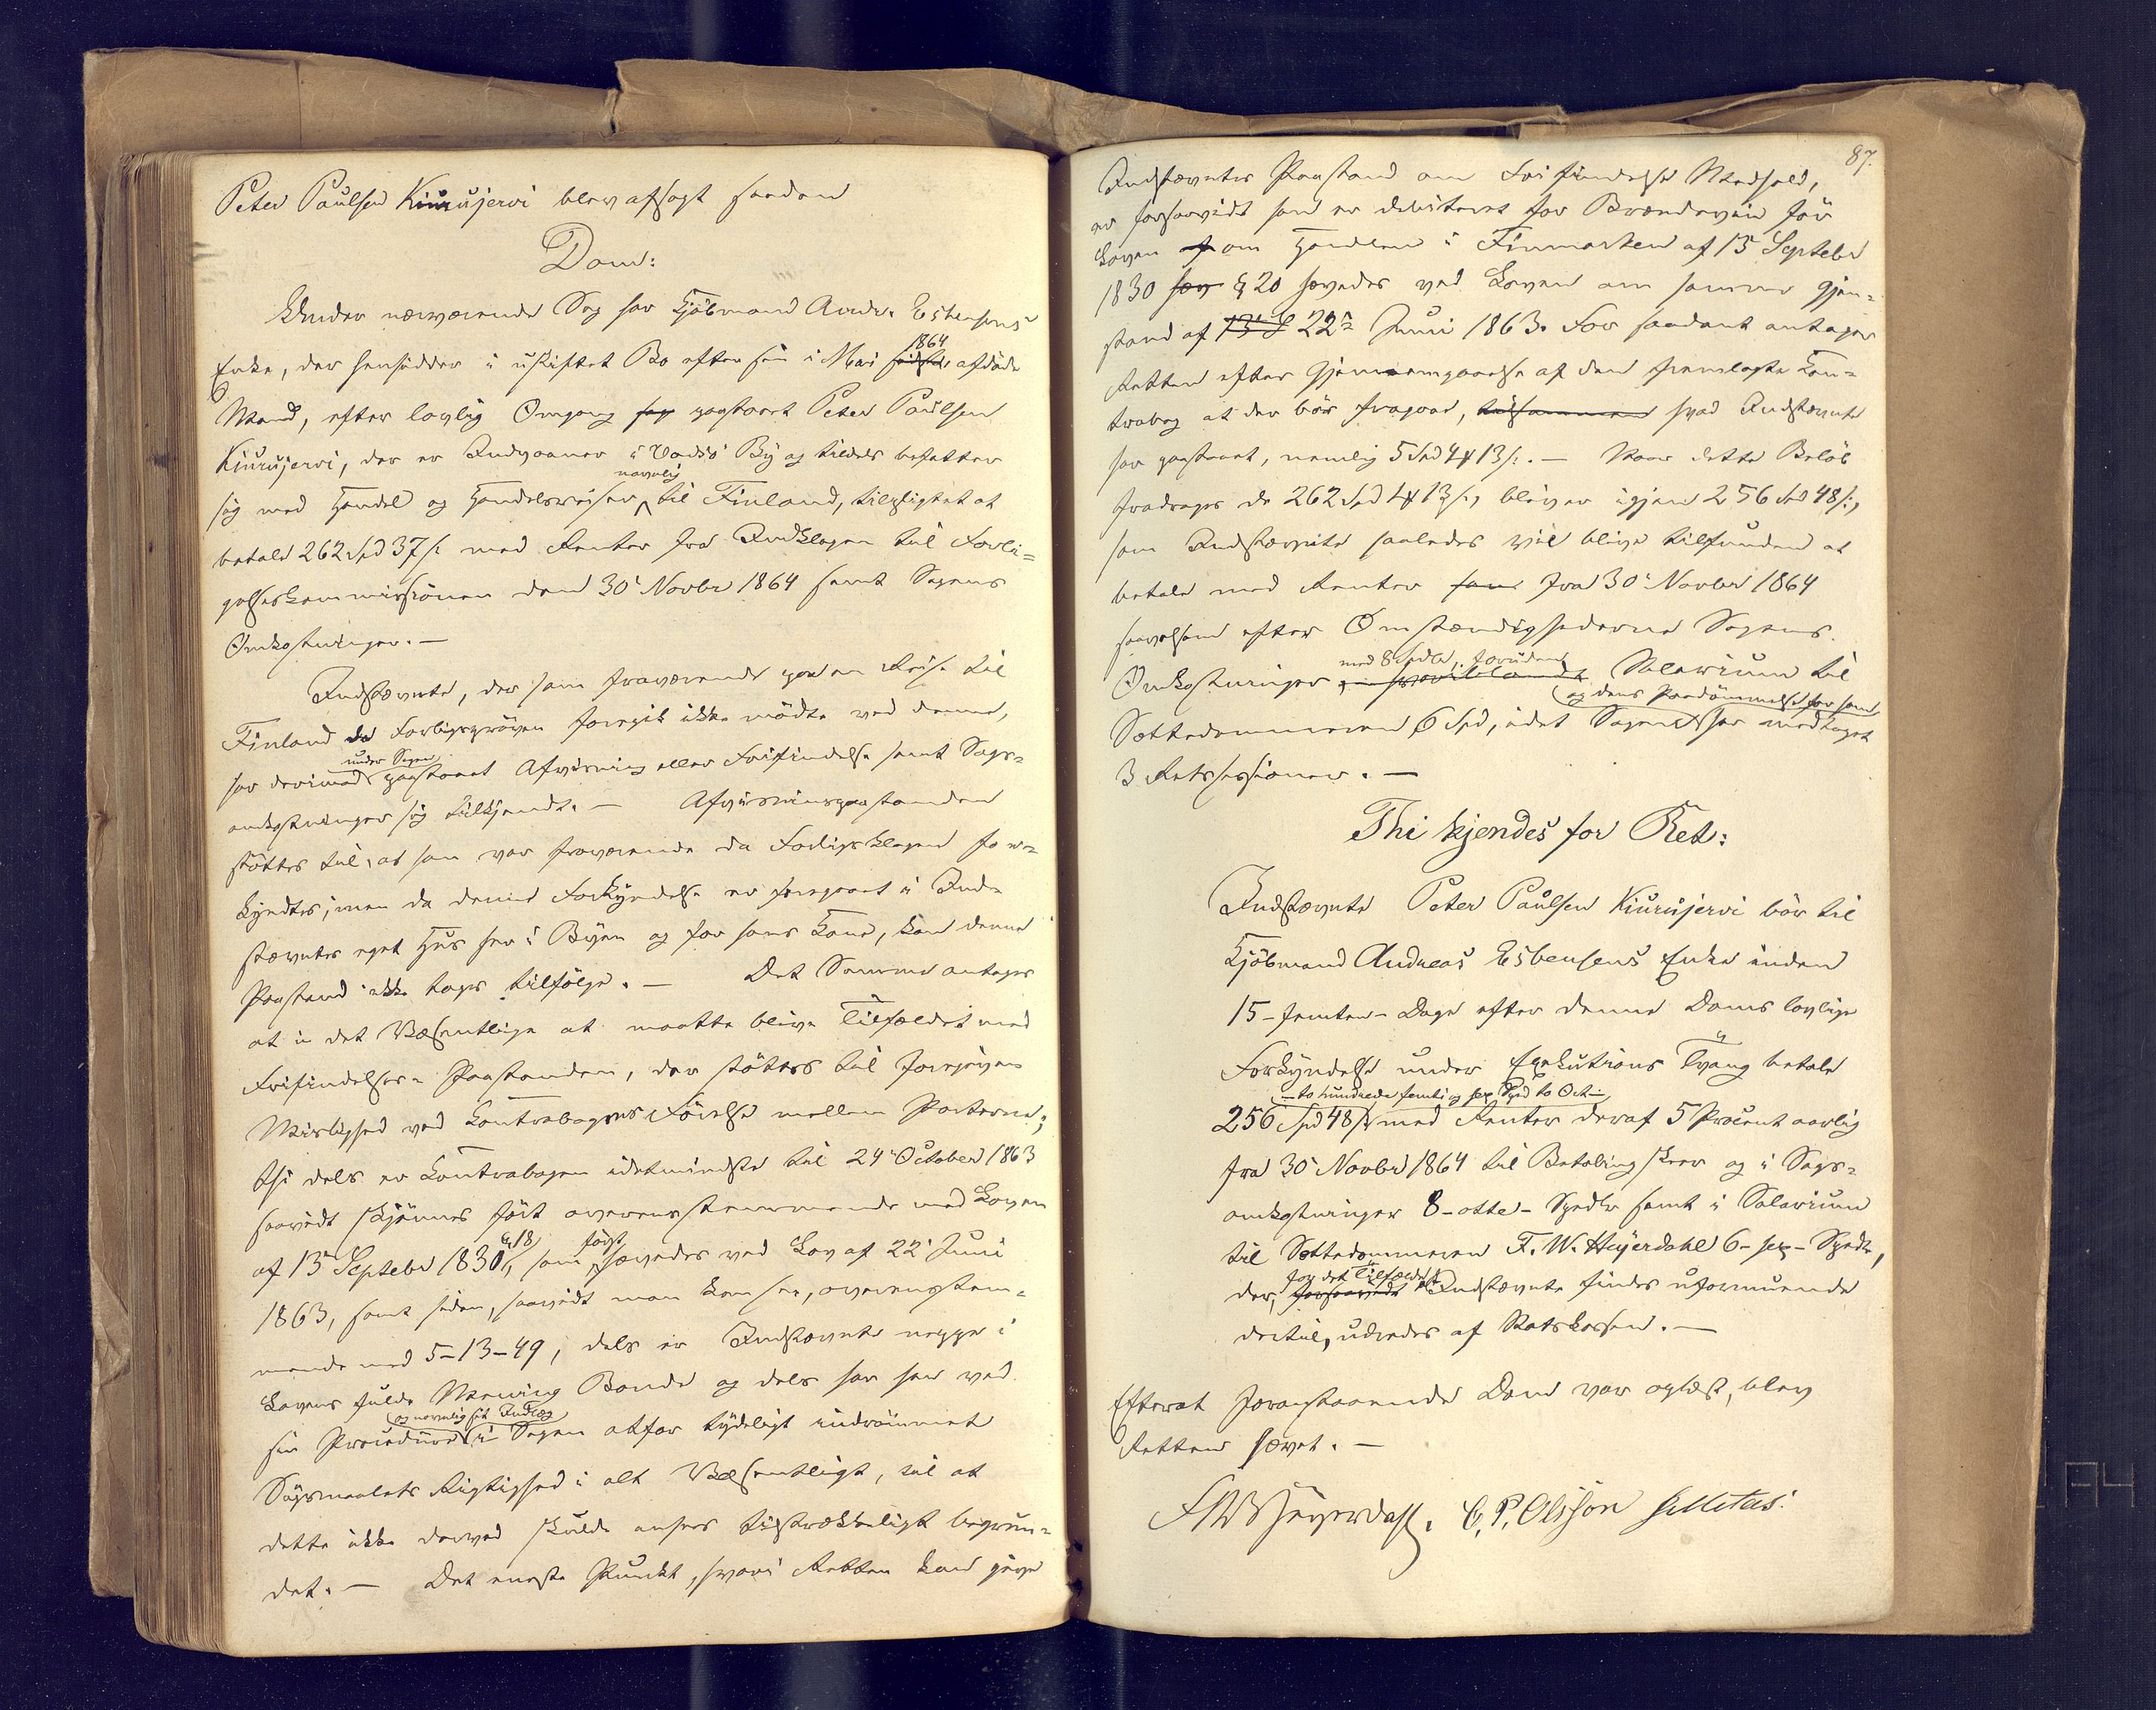 Peter Paulsen Kiurujervi blev afsagt saadan
Dom:
Under nærværende Sag har Kjöbmand Andr. Esbensens
1864
Enke, der hensidder i uskiftet Bo efter sin i Mai sidste afdöde
Mand, efter lovlig Omgang paastaaet Peter Paulsen
Kiurujervi, der er Indvaaner i Vadsö By og tildels befatter
navnlig
sig med Handel og Handelsreiser til Finland, tilpligtet at
betale 262 Spd 37 s. med Renter fra Indklagen til Forli-
gelseskommissionen den 30' Novbr 1864 samt Sagens
Omkostninger. —
Indstævnte, der som fraværende paa en Reise til
Finland da Forligspröven foregik ikke mödte ved denne,
under Sagen
har derimod paastaaet Afvisning eller Frifindelse samt Sags-
omkostninger sig tilkjendt. — Afvisningspaastanden
stöttes til, at han var fraværende da Forligsklagen for-
kyndtes; men da denne Forkyndelse er foregaaet i Ind-
stævntes eget Hus her i Byen og for hans Kone, kan denne
Paastand ikke tages tilfölge. — Det Samme antages
at i det Væsentlige at maatte blive Tilfældet med
Frifindelses-Paastanden, der stöttes til foregiven
Mislighed ved Contrabogens Förelse mellem Parterne;
thi dels er Contrabogen idetmindste til 24' October 1863
saavidt skjönnes fört overensstemmende med Loven
§ 18 först
af 13' Septebr 1830, som hævedes ved Lov af 22' Juni
1863, samt siden, saavidt man kan see, overensstem-
mende med 5-13-49, dels er Indstævnte neppe i
Lovens fulde Mening Bonde og dels har han ved
og navnlig sit Indlæg
sin Procedure i Sagen altfor tydeligt indrömmet
Sögsmaalets Rigtighed i alt Væsentligt, til at
dette ikke derved skulde ansees tilstrækkeligt begrun-
det. — Det eneste Punkt, hvori Retten kan give
87.
Indstævntes Paastand om Frifindelse Medhold,
er forsaavidt han er debiteret for Brændeviin för
Loven om Handelen i Finmarken af 13 Septebr
1830 § 20 hævedes ved Loven om samme Gjen-
stand af 13' S 22de Juni 1863. For saadant antager
Retten efter Gjennemgaaelse af den fremlagte Con-
trabog at der bör fragaae, tilsammen hvad Indstævnte
har paastaaet, nemlig 5 Spd 4 # 13 s. — Naar dette Belöb
fradrages de 262 Spd 1 # 13 s., bliver igjen 256 Spd 48 s.,
som Indstævnte saaledes vil blive tilfunden at
betale med Renter fra 30' Novbr 1864
saavelsom efter Omstændighederne Sagens
med 8 Spdlr., foruden
Omkostninger, Salarium til
og dens Paadömmelse for ham
Sættedommeren 6 Spd, idet Sagen har medtaget
3 Retssessioner. —
Thi kjendes for Ret:
Indstævnte Peter Paulsen Kiurujervi bör til
Kjöbmand Andreas Esbensens Enke inden
15 - femten - Dage efter denne Doms lovlige
Forkyndelse under Exekutions Tvang betale
- to hundrede femti og sex Spd to Ort -
256 Spd 48 s. med Renter deraf 5 Procent aarlig
fra 30' Novbr 1864 til Betaling skeer og i Sags-
omkostninger 8 - otte - Spdlr samt i Salarium
til Sættedommeren F. W. Heyerdahl 6 - sex - Spdlr,
for det Tilfælde at
der, forsaavidt Indstævnte findes uformuende
dertil, udredes af Statskassen. —
Efterat foranstaaende Dom var oplæst, blev
Retten hævet. —
F W Heyerdahl. C. P. Olsson Mietas.